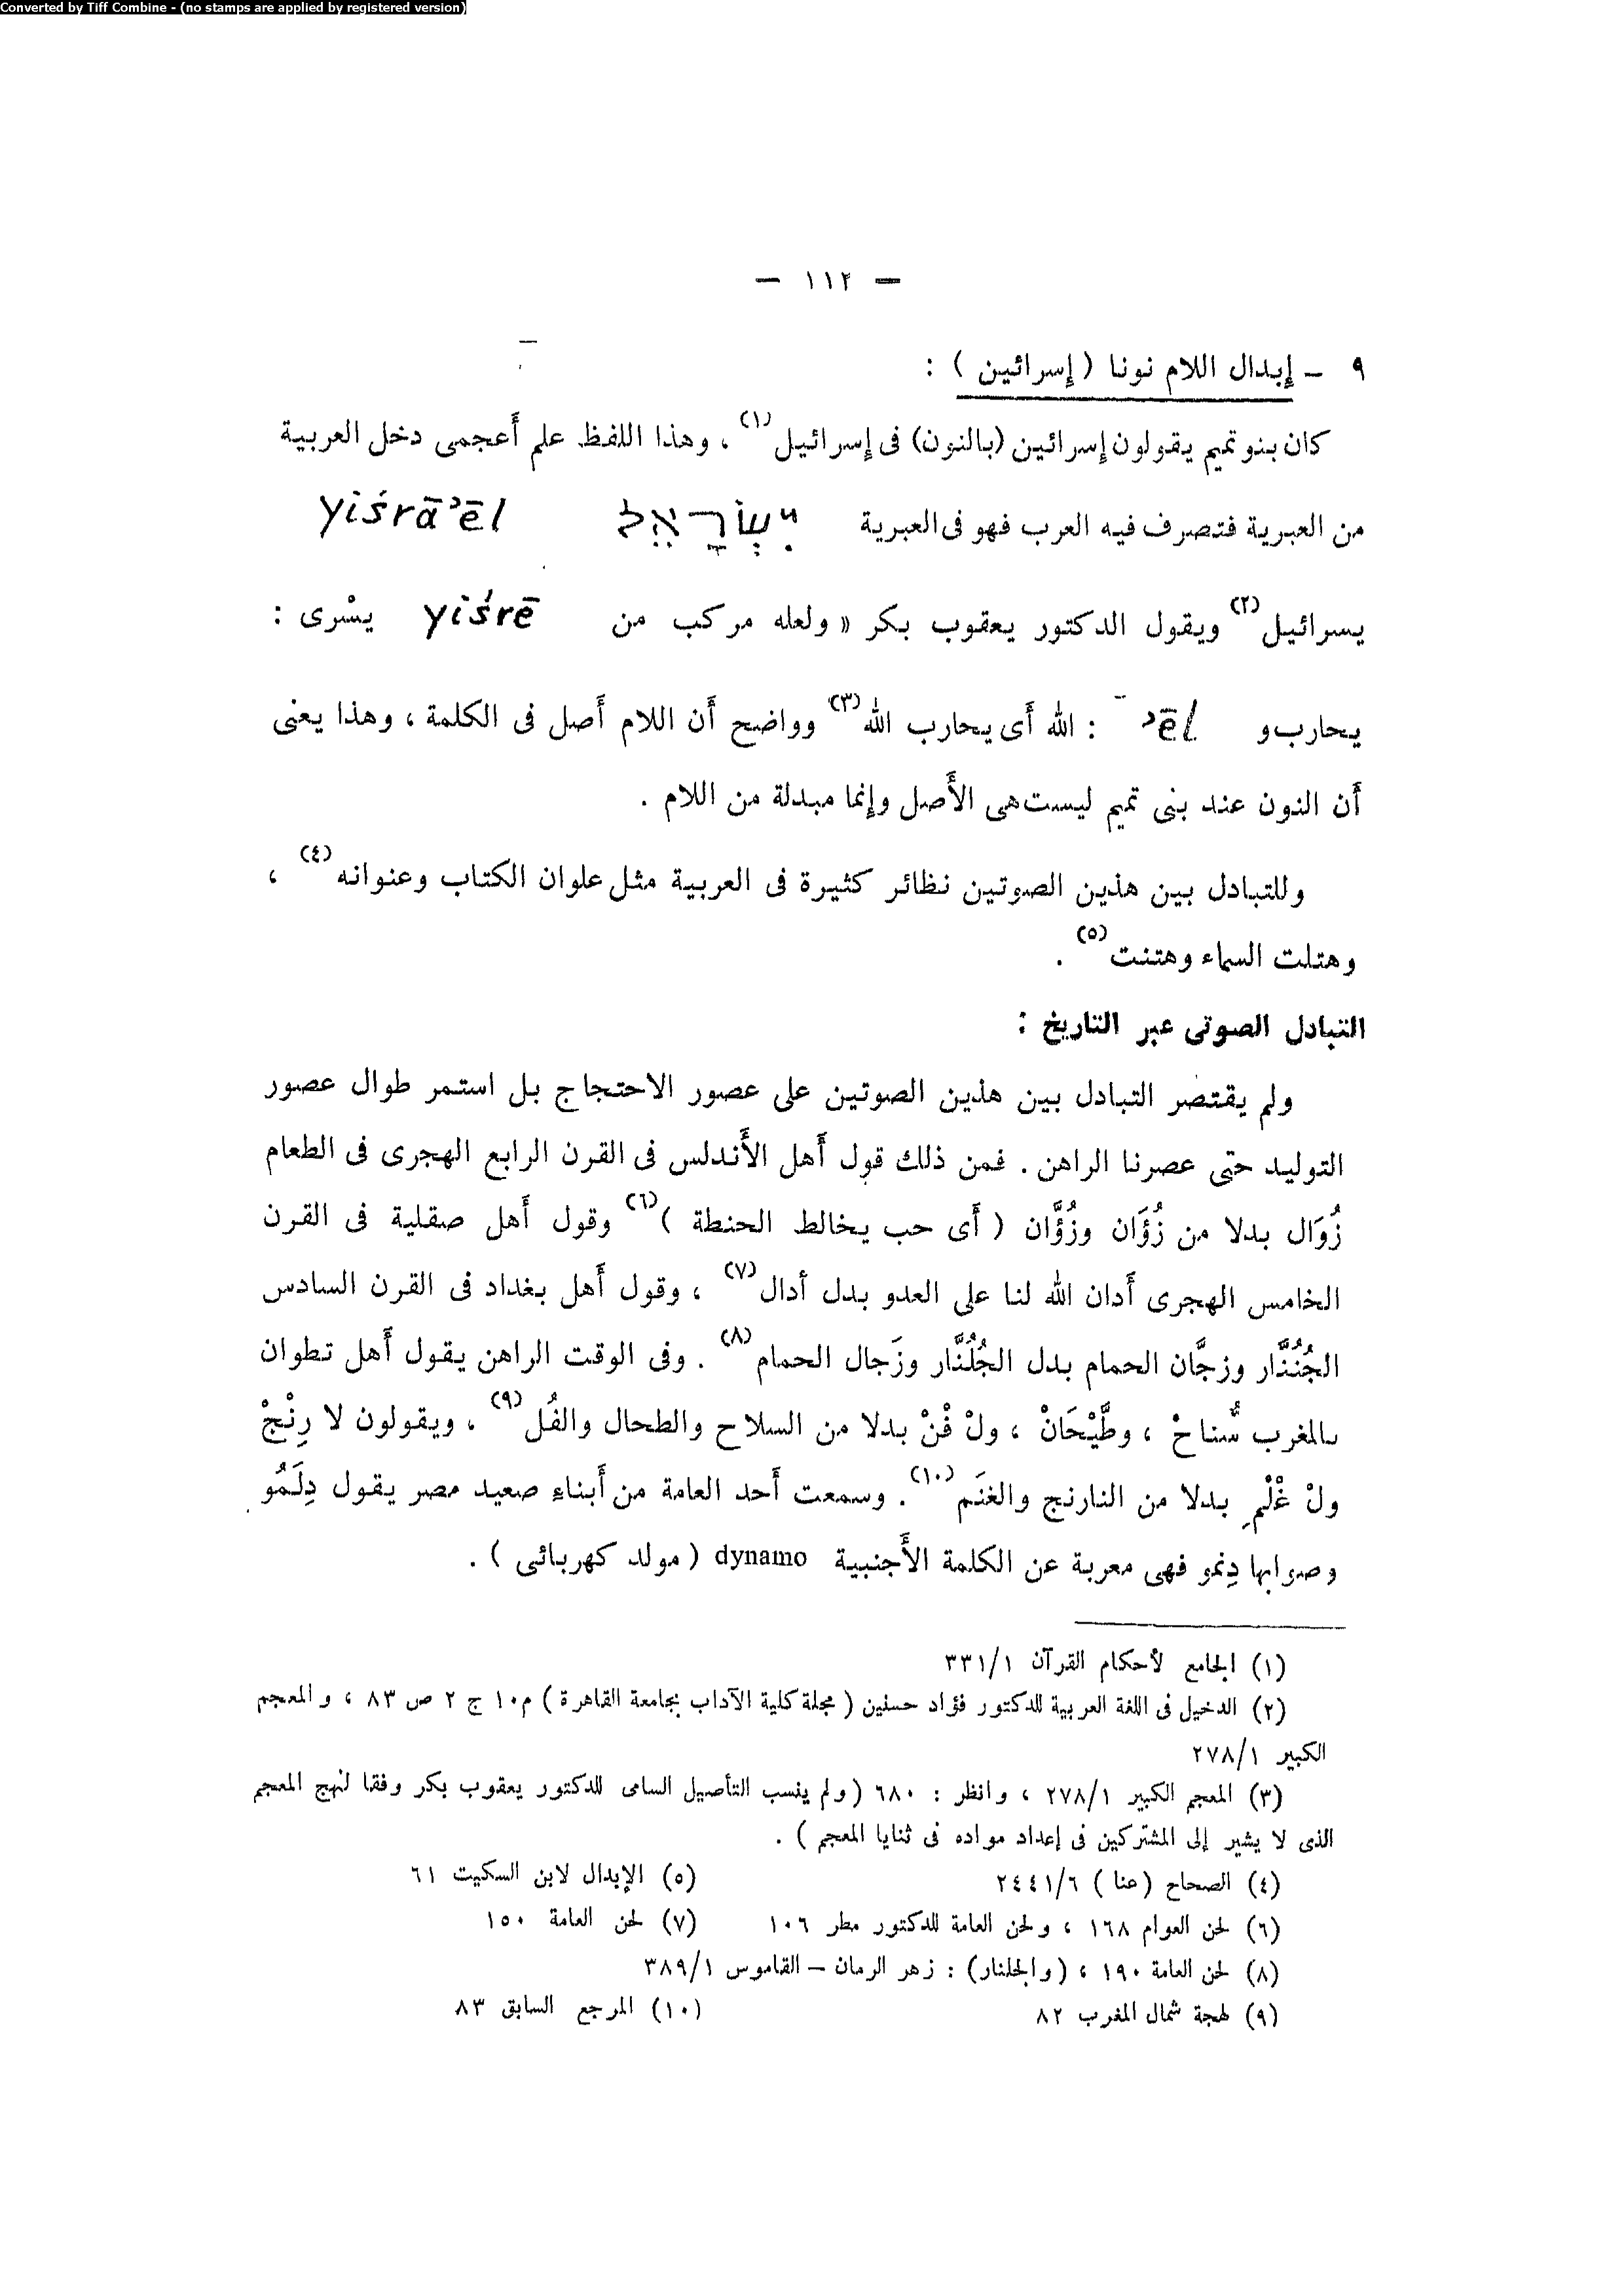 Converted by Tiff Combine - (no stamps are applied by registered version)
— ١١٢ —
٩ – إبدال اللام نونا ( إسرائين ) :
كان بنو تميم يقولون إسرائين (بالنون) فى إسرائيل(١) ، وهذا اللفظ علم أَعجمى دخل العربية
من العبرية فتصرف فيه العرب فهو فى العبرية יִשְׂרָאֵל yiśrāʾēl
يسرائيل(٢) ويقول الدكتور يعقوب بكر « ولعله مركب من yiśrē يسْرى :
يحارب و ʾēl : الله أَى يحارب الله(٣) وواضح أَن اللام أَصل فى الكلمة ، وهذا يعنى
أَن النون عند بنى تميم ليست هى الأَصل وإنما مبدلة من اللام .
وللتبادل بين هذين الصوتين نظائر كثيرة فى العربية مثل علوان الكتاب وعنوانه(٤) ،
وهتلت السماء وهتنت(٥) .
التبادل الصوتى عبر التاريخ :
ولم يقتصر التبادل بين هذين الصوتين على عصور الاحتجاج بل استمر طوال عصور
التوليد حتى عصرنا الراهن . فمن ذلك قول أَهل الأَندلس فى القرن الرابع الهجرى فى الطعام
زُوَال بدلا من زُؤَان وزُوَّان ( أَى حب يخالط الحنطة )(٦) وقول أَهل صقلية فى القرن
الخامس الهجرى أَدان الله لنا على العدو بدل أدال(٧) ، وقول أَهل بغداد فى القرن السادس
الجُنُنَّار وزجَّان الحمام بدل الجُلُنَّار وزَجال الحمام(٨) . وفى الوقت الراهن يقول أَهل تطوان
بالمغرب سُّناحْ ، وطَّيْحَانْ ، ولْ فْنْ بدلا من السلاح والطحال والفُل(٩) ، ويقولون لا رِنْجْ
ولْ غْلْمِ بدلا من النارنج والغنَم(١٠) . وسمعت أَحد العامة من أَبناءِ صعيد مصر يقول دِلَمُو
وصوابها دِنمو فهى معربة عن الكلمة الأَجنبية dynamo ( مولد كهربائى ) .
(١) الجامع لأحكام القرآن ٣٣١/١
(٢) الدخيل فى اللغة العربية للدكتور فؤاد حسنين ( مجلة كلية الآداب بجامعة القاهرة ) م١٠ ج ٢ ص ٨٣ ، والمعجم
الكبير ٢٧٨/١
(٣) المعجم الكبير ٢٧٨/١ ، وانظر : ٦٨٠ (ولم ينسب التأصيل السامى للدكتور يعقوب بكر وفقا لنهج المعجم
الذى لا يشير إلى المشتركين فى إعداد مواده فى ثنايا المعجم ) .
(٤) الصحاح (عنا ) ٢٤٤١/٦ (٥) الإبدال لابن السكيت ٦١
(٦) لحن العوام ١٦٨ ، ولحن العامة للدكتور مطر ١٠٦ (٧) لحن العامة ١٥٠
(٨) لحن العامة ١٩٠ ، (والجلنار) : زهر الرمان – القاموس ٣٨٩/١
(٩) لهجة شمال المغرب ٨٢ (١٠) المرجع السابق ٨٣